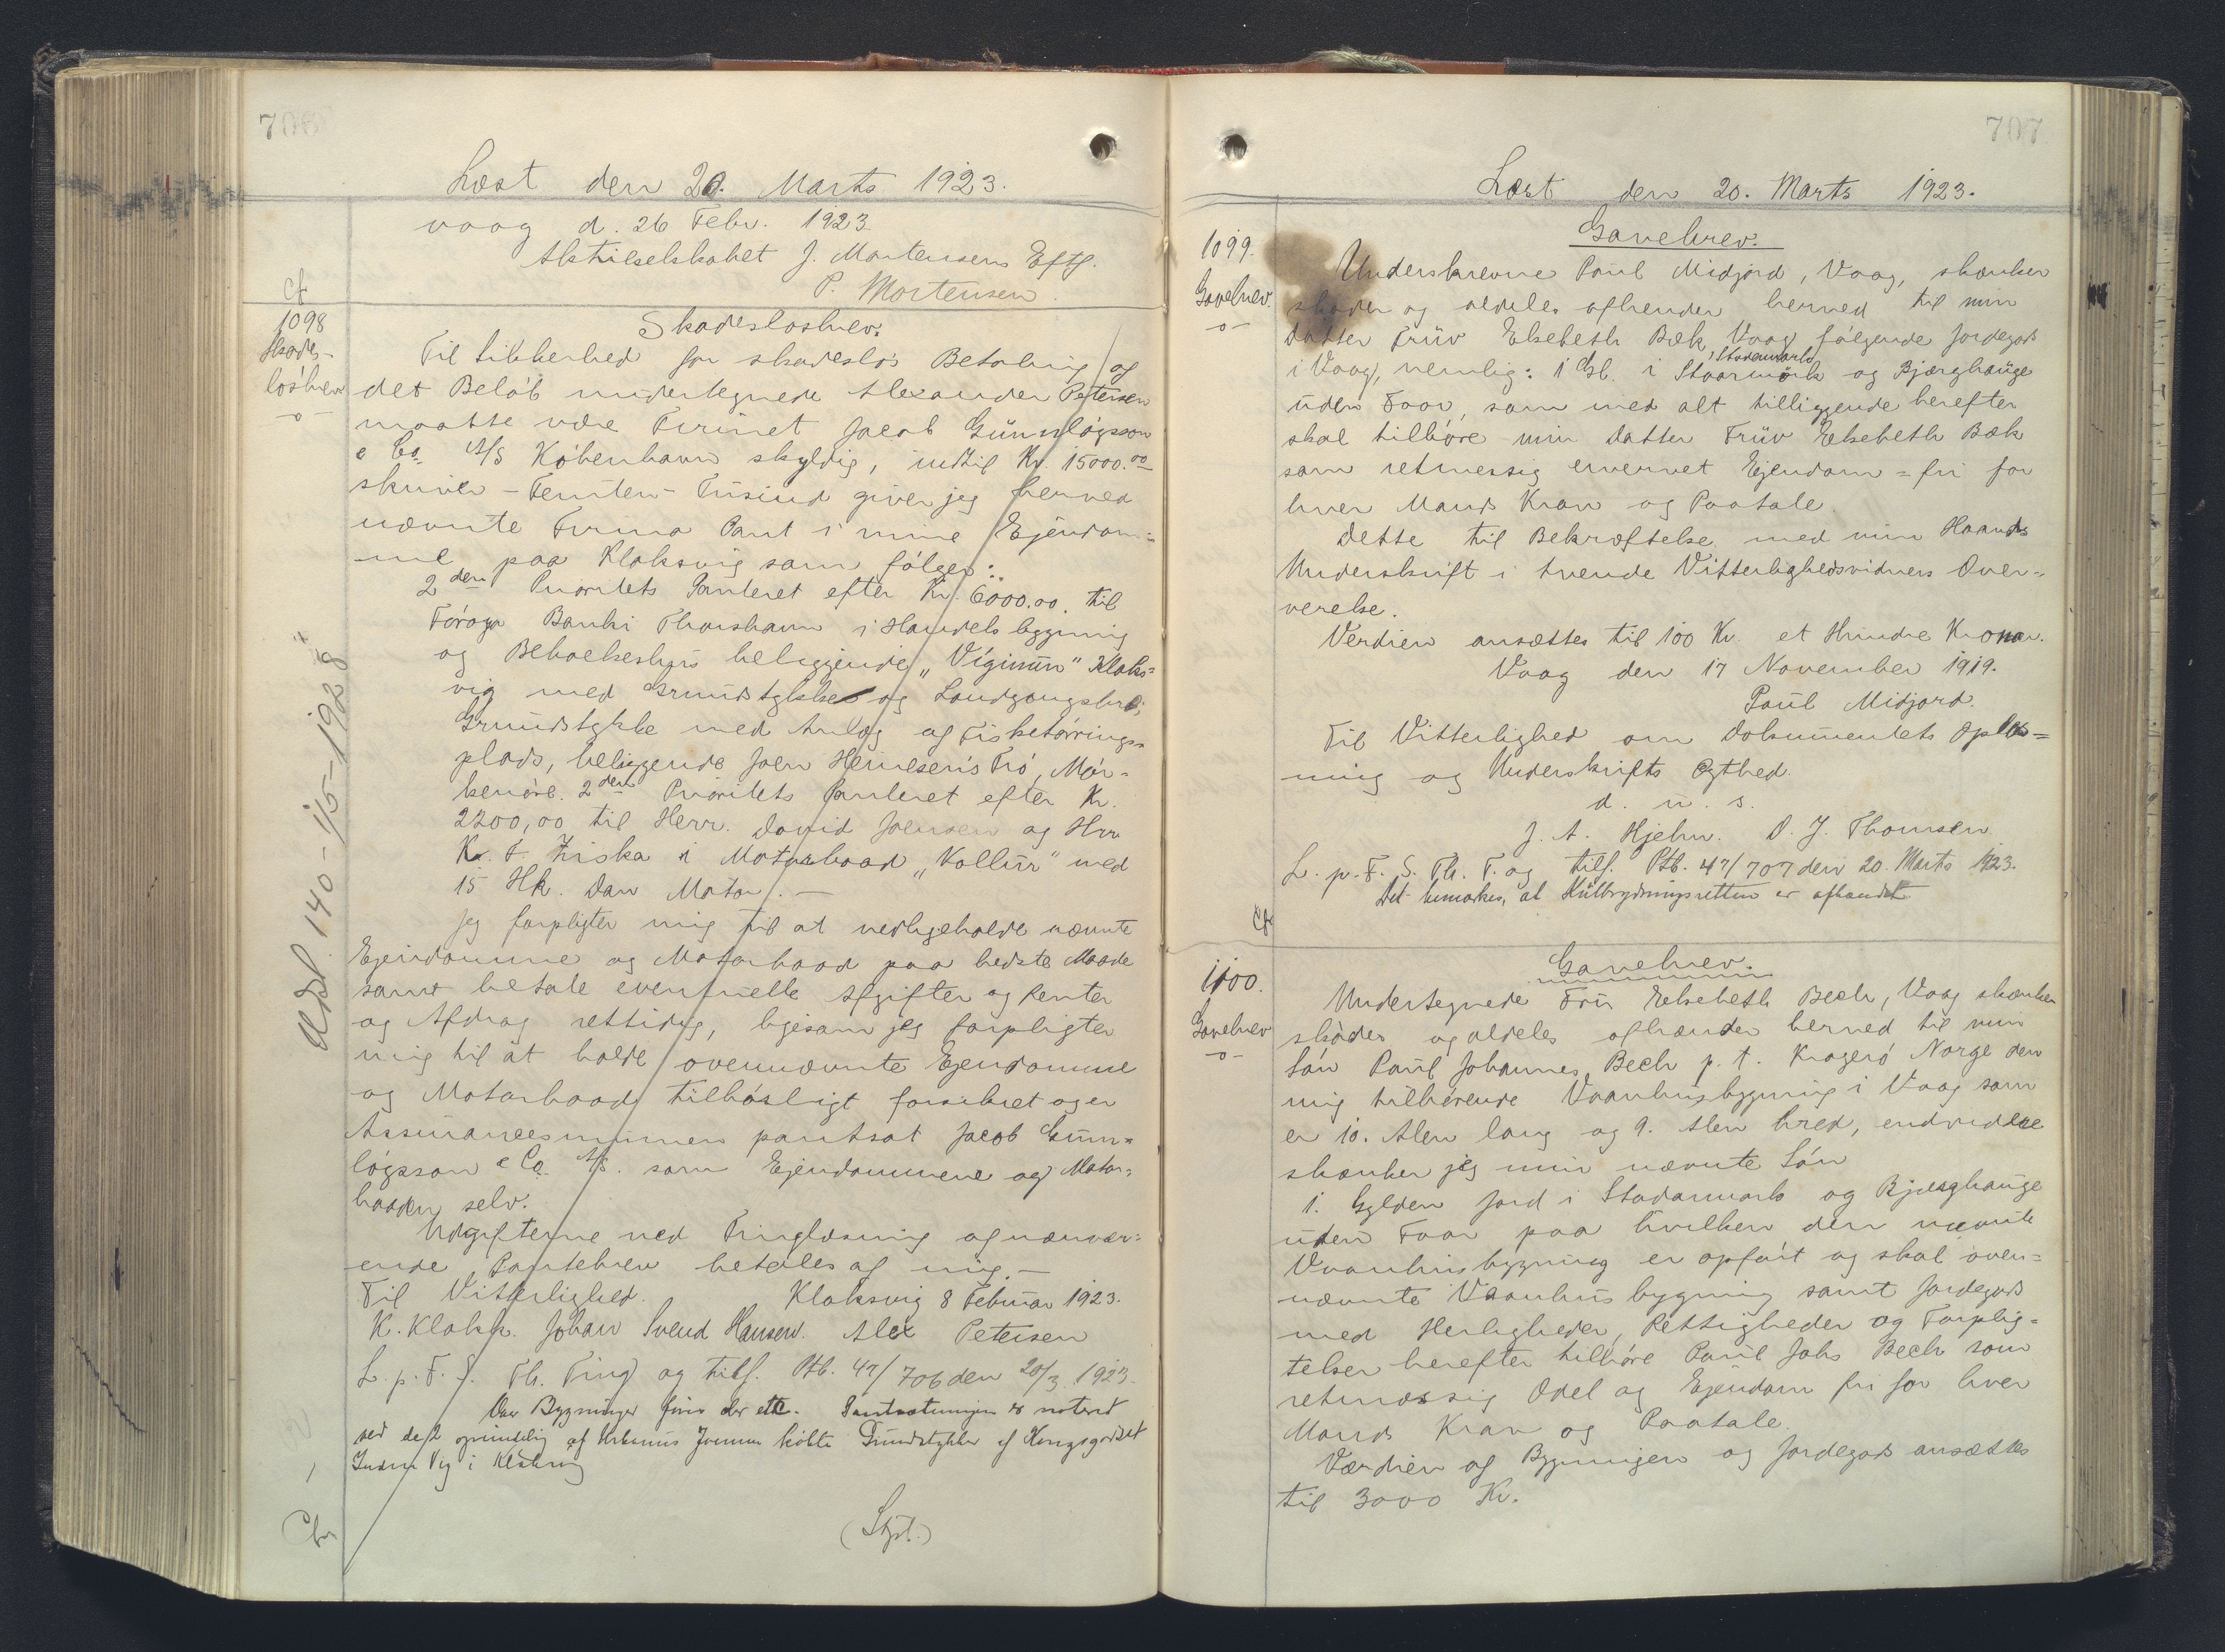 706
Læst den 20. Marts 1923.
vaag d. 26 Febr. 1923
Aktieselskabet J. Mortensens Eftf.
P. Mortensen.
cf
1098
Skades-
løsbrev
-o-
Skadesløsbrev.
Til Sikkerhed for skadesløs Betaling af
det Beløb undertegnede Alexander Petersen
maatte være Firmaet Jacob Günnløgsson
& Co. A/S København skyldig, indtil Kr. 15000.00
skriver - Femten - Tusind giver jeg herved
nævnte Firma Pant i mine Ejendom=
me paa Klaksvig som følger:
2den Prioritets Panteret efter Kr. 6000.00. til
Føroya Banki Thorshavn i Handelsbygning
og Beboelseshus beliggende "Víginum" Klaks=
vig med Grundstykke og Landgangsbro;
Grundstykke med Anlæg af Fisketørrings=
plads, beliggende Joen Heinesens Trø,
2den Prioritets Panteret efter Kr.
2200,00 til Herr. David Joensen og Herr
K. F. Ziska i Motorbaad "Vollur" med
15 Hk. Dan Motor. —
Jeg forpligter mig til at vedligeholde nævnte
Ejendomme og Motorbaad paa bedste Maade
samt betale eventuelle Afgifter og Renter
og Afdrag rettidig, ligesom jeg forpligter
mig til at holde ovennævnte Ejendomme
og Motorbaad tilbørligt forsikret og er
Assurancesummen pantsat Jacob Gunn=
løgsson & Co. A/S. som Ejendommene og Motor=
baaden selv.
Udgifterne ved Tinglæsning af nærvær=
ende Pantebrev betales af mig. —
Til Vitterlighed. Klaksvig 8 Februar 1923.
K. Klakk. Johan Svend Hansen. Alex Petersen
L. p. F. S. Th. Ting og tilf. Ptb. 47/706 den 20/3 1923.
Over Bygninger fins der ette. Pantsætningen er noteret
ved de 2 oprindelig af Urbanus Joensen købte Grundstykker af Kongsgodset
i Klaksvig
(Stpl.)
Afl. 140 - 1/5-1928
707
Læst den 20. Marts 1923.
1099.
Gavebrev.
-o-
Gavebrev.
Underskrevne Poul Midjord, Vaag, skænker
skøder og aldeles afhender herved til min
Datter Fruv Elsebeth Bæk Vaag følgende Jordegods
Stademark
i Vaag, nemlig: 1 Gl. i Staarmørk og Bjærghauge
uden Faar, som med alt tilliggende herefter
skal tilhøre min Datter Fruv Elsebeth Bæk
som retmessig ervervet Ejendom = fri for
hver Mands Krav og Paatale.
Dette til Bekræftelse med min Haands
Underskrift i tvende Vitterlighedsvidners Over=
verelse.
Verdien ansættes til 100 Kr. et Hundre Kroner.
Vaag den 17 November 1919.
Poul Midjord.
Til Vitterlighed om Dokumentets Oplæs=
ning og Underskrifts Ægthed.
d. u. s.
J. A. Hjelm. D. J. Thomsen
L. p. F. S. Th. T. og tilf. Ptb. 47/707 den 20. Marts 1923.
Det bemærkes, at Kulbrydningsretten er afhændet
cf
1100.
Gavebrev
-o-
Gavebrev.
Undertegnede Fru Elsebeth Bech, Vaag skænker
skøder og aldeles afhænder herved til min
Søn Poul Johannes Bech p. t. Kragerø Norge den
mig tilhørende Vaanhusbygning i Vaag som
er 10. Alen lang og 9. Alen bred, endvidere
skænker jeg min nævnte Søn
1. Gylden Jord i Stadarmark og Bjærghauge
uden Faar paa hvilken den nævnte
Vaanhusbygning er opført og skal oven=
nævnte Vaanhusbygning samt Jordegods
med Herligheder, Rettigheder og Forplig=
telser herefter tilhøre Poul Johs Bech som
retmæssig Odel og Ejendom fri for hver
Mands Krav og Paatale.
Værdien af Bygningen og Jordegods ansættes
til 3000 Kr.